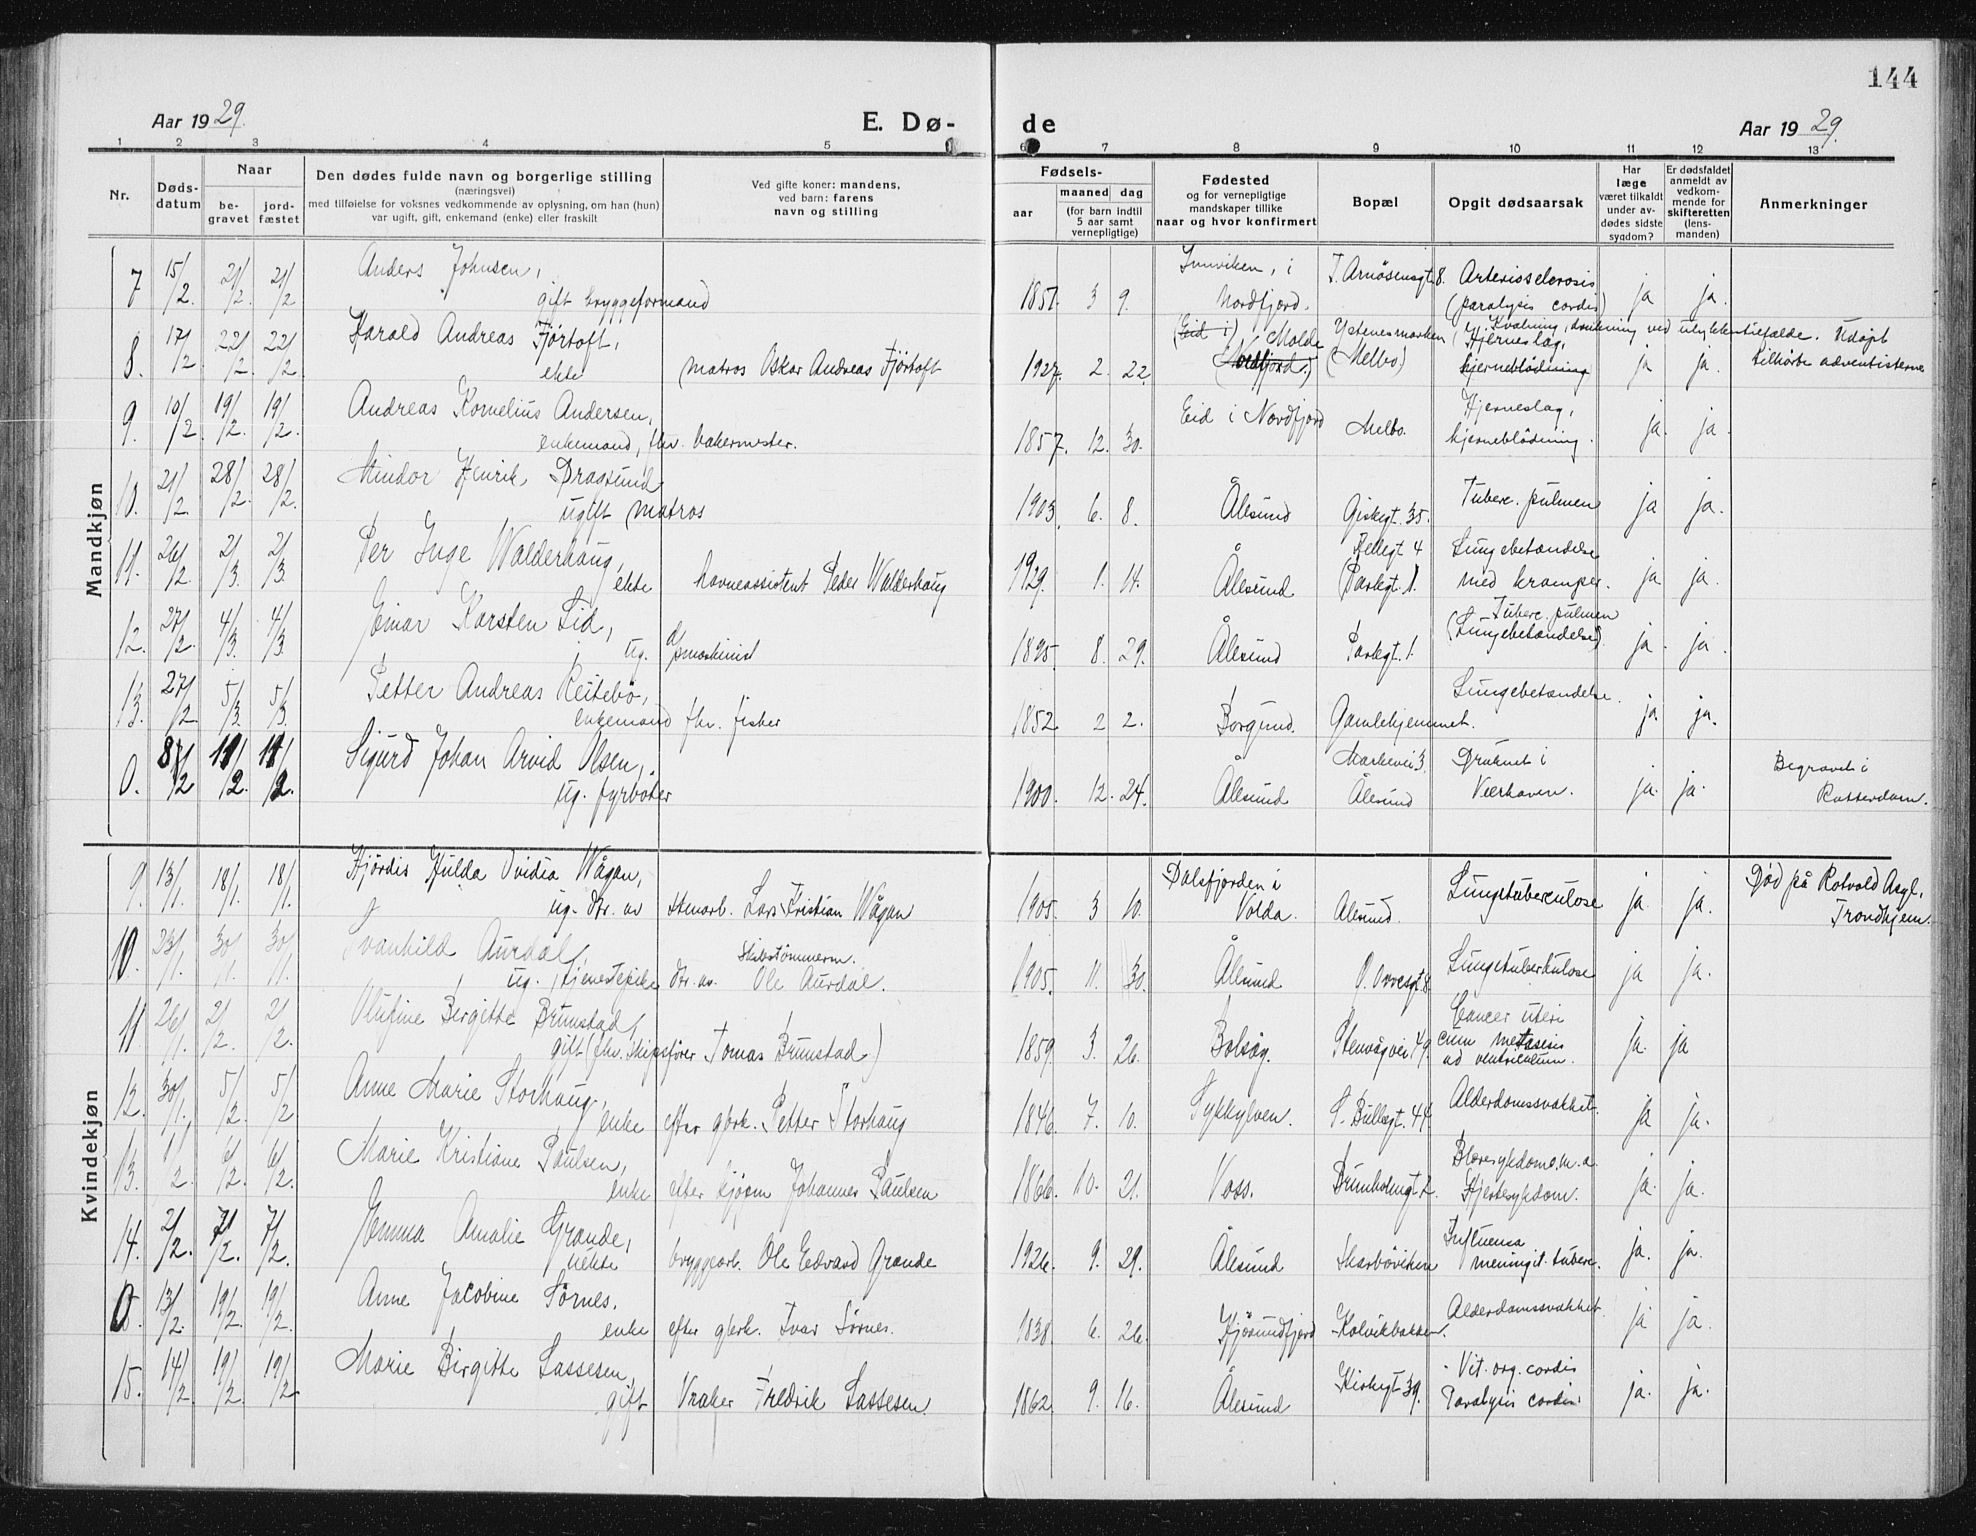 144
Aar 1929.
E. Dø-
de
Aar 1929.
1 2 3 4 5 6 7 8 9 10 11 12 13
Nr.
Døds-
datum
Naar
be-
gravet
jord-
fæstet
Den dødes fulde navn og borgerlige stilling
(næringsvei)
med tilføielse for voksnes vedkommende av oplysning, om han (hun)
var ugift, gift, enkemand (enke) eller fraskilt
Ved gifte koner: mandens,
ved barn: farens
navn og stilling
Fødsels-
aar
maaned dag
(for barn indtil
5 aar samt
vernepligtige)
Fødested
og for vernepligtige
mandskaper tillike
naar og hvor konfirmert
Bopæl
Opgit dødsaarsak
Har
læge
været tilkaldt
under av-
dødes sidste
sygdom?
Er dødsfaldet
anmeldt av
vedkom-
mende for
skifteretten
(lens-
manden)
Anmerkninger
Mandkjøn
7 15/2. 21/2. 21/2 Anders Johnsen,
gift bryggeformand
1851. 3 9. Innviken, i
Nordfjord.
T. Arnøsensgt. 8. Arteriosclerosis
(paralysis cordis) ja ja.
8. 17/2 22/2. 22/2. Harald Andreas Fjørtoft,
ekte matros Oskar Andreas Fjørtoft
1927. 2. 22. (Eid i) Molde
(Nordfjord.)
Ystenesmarken
(Melbo)
Kvælning, drukning ved ulykkestilfælde. Udøpt
(Hjerneslag,
hjerneblødning ja ja. tilhørte adventisterne
9. 10/2. 19/2. 19/2. Andreas Kornelius Andersen,
enkemand, fhv. bakermester.
1857. 12. 30. Eid i Nordfjord Melbo. Hjerneslag,
hjerneblødning. ja. ja.
10. 21/2. 28/2. 28/2. Mindor Henrik Dragsund
ugift matros
1903. 6. 8. Ålesund Giskegt. 35. Tuberc. pulmen ja ja.
11. 26/2 2/3. 2/3. Per Inge Walderhaug,
ekte havneassistent Peder Walderhaug
1929. 1. 14. Ålesund Parkgt. 1. Lungebetændelse
med kramper. ja ja.
12. 27/2. 4/3. 4/3. Einar Karsten Lid,
ug. maskinist
1895. 8. 29. Ålesund Parkgt. 1. Tuberc. pulmen
(Lungebetændelse) ja. ja.
13. 27/2 5/3. 5/3. Petter Andreas Reitebø,
enkemand fhv. fisker
1852 2 2. Borgund. Gamlehjemmet. Lungebetændelse. ja. ja.
0. 8/2 11/2. 11/2. Sigurd Johan Arvid Olsen,
ug. fyrbøter
1900. 12. 24. Ålesund Ålesund Druknet i
Veerhaven. ja. ja. Begravet i
Rotterdam.
Kvindekjøn
9. 13/1. 18/1. 18/1. Hjørdis Hulda Ovidia Wågan,
ug. dtr. av stenarb. Lars Kristian Wågan
1905. 3 10. Dalsfjorden i
Volda. Ålesund. Lungetuberculose ja. ja. Død på Rotvold Asyl,
Trondhjem.
10. 23/1. 30/1. 30/1. Svanhild Aurdal,
ug., tjenestepike dtr. av. Skibstømmerm.
Ole Aurdal.
1905. 11. 30. Ålesund Lungetuberkulose ja ja.
11. 26/1. 2/2. 2/2. Olufine Birgitte Brunstad,
gift (fhv. skipsfører Tomas Brunstad)
1859. 3. 26. Bolsøy. Stenvågvei. 49. Cancer uteri
cum metasesis
ad ventriculum. ja. ja
12. 30/1. 5/2. 5/2 Anne Marie Storhaug,
enke efter gbrk. Petter Storhaug
1846. 7. 10. Sykkylven. S. Bullsgt. 44. Alderdomssvakhet. ja ja.
13. 1/2. 6/2. 6/2. Marie Kristiane Paulsen,
enke efter kjøpm Johannes Paulsen
1866. 10. 21. Voss. Brunholmgt. 2. Blæresykdom o. m. a.
Hjertesykdom. ja. ja.
14. 2/2. 7/2. 7/2. Emma Amalie Grande,
uekte bryggearb. Ole Edvard Grande
1926. 9. 29. Ålesund Skarbøviken Influensa
meningit. tuberc. ja. ja.
0 13/2. 19/2. 19/2. Anne Jacobine Sørnes.
enke efter gbrk. Ivar Sørnes.
1838. 6. 26. Hjørundfjord Kolvikbakken. Alderdomssvakhet. ja ja.
15. 14/2 19/2 19/2 Marie Birgitte Lassesen,
gift Vraker Fredrik Lassesen.
1862. 9. 16. Ålesund Kirkegt 39. Vit. org. cordis
Paralysis cordis ja. ja.